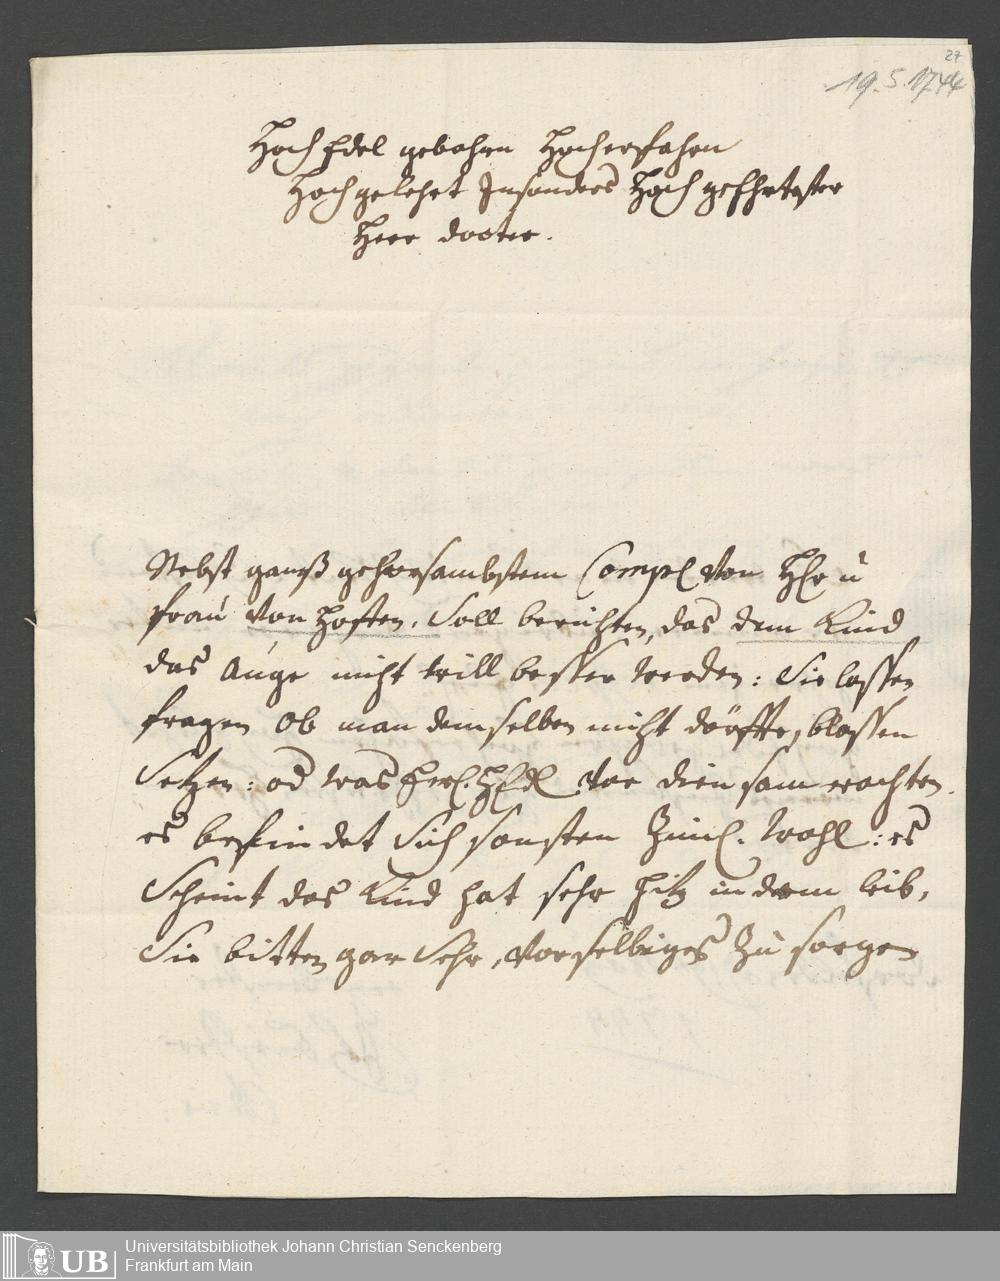 27
19.5.1744
Hoch Edel gebohrn Hocherfahrn
Hochgelehrt Insonders Hoch geEhrtester
Herr docter.
Nebst gantz gehorsambstem Compl von H. u
frau von Hosten, Soll berichten, das dem Kind
das Auge nicht will besser werden: Sie lassen
fragen ob man demselben nicht dörffte, blassen
Setzen: od was vor dien sam erachten.
es befindet Sich sonsten Ziml. wohl: es
Scheint das Kind hat sehr hitz in dem leib,
Sie bitten gar Sehr, vor selbiges Zu sorgen
UB
Universitätsbibliothek Johann Christian Senckenberg
Frankfurt am Main